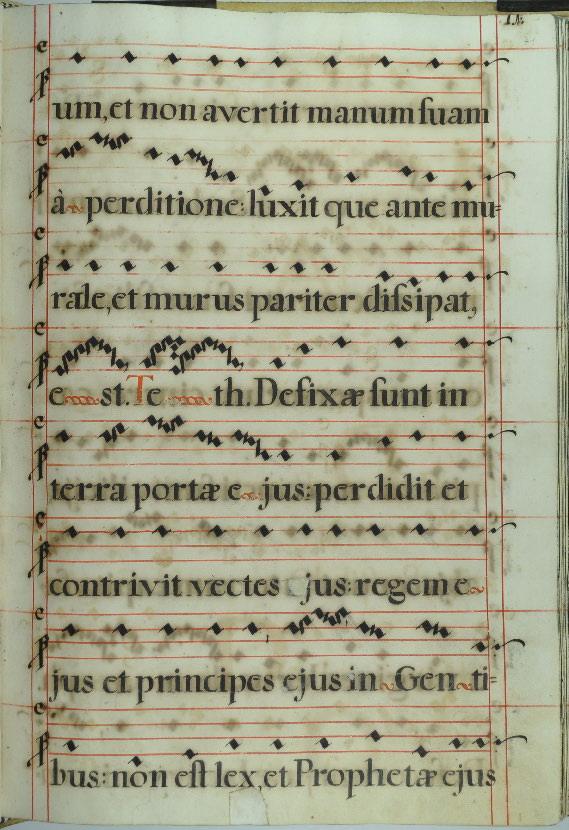 um, et non avertit manum ſuam
à perditione: luxit que ante mu-
rale, et murus pariter diſsipat,
e st. Te th. Defixæ ſunt in
terra portæ e jus: perdidit et
contrivit vectes jus: regem e
jus et principes ejus in Gen ti-
bus: non eſt lex, et Prophetæ ejus